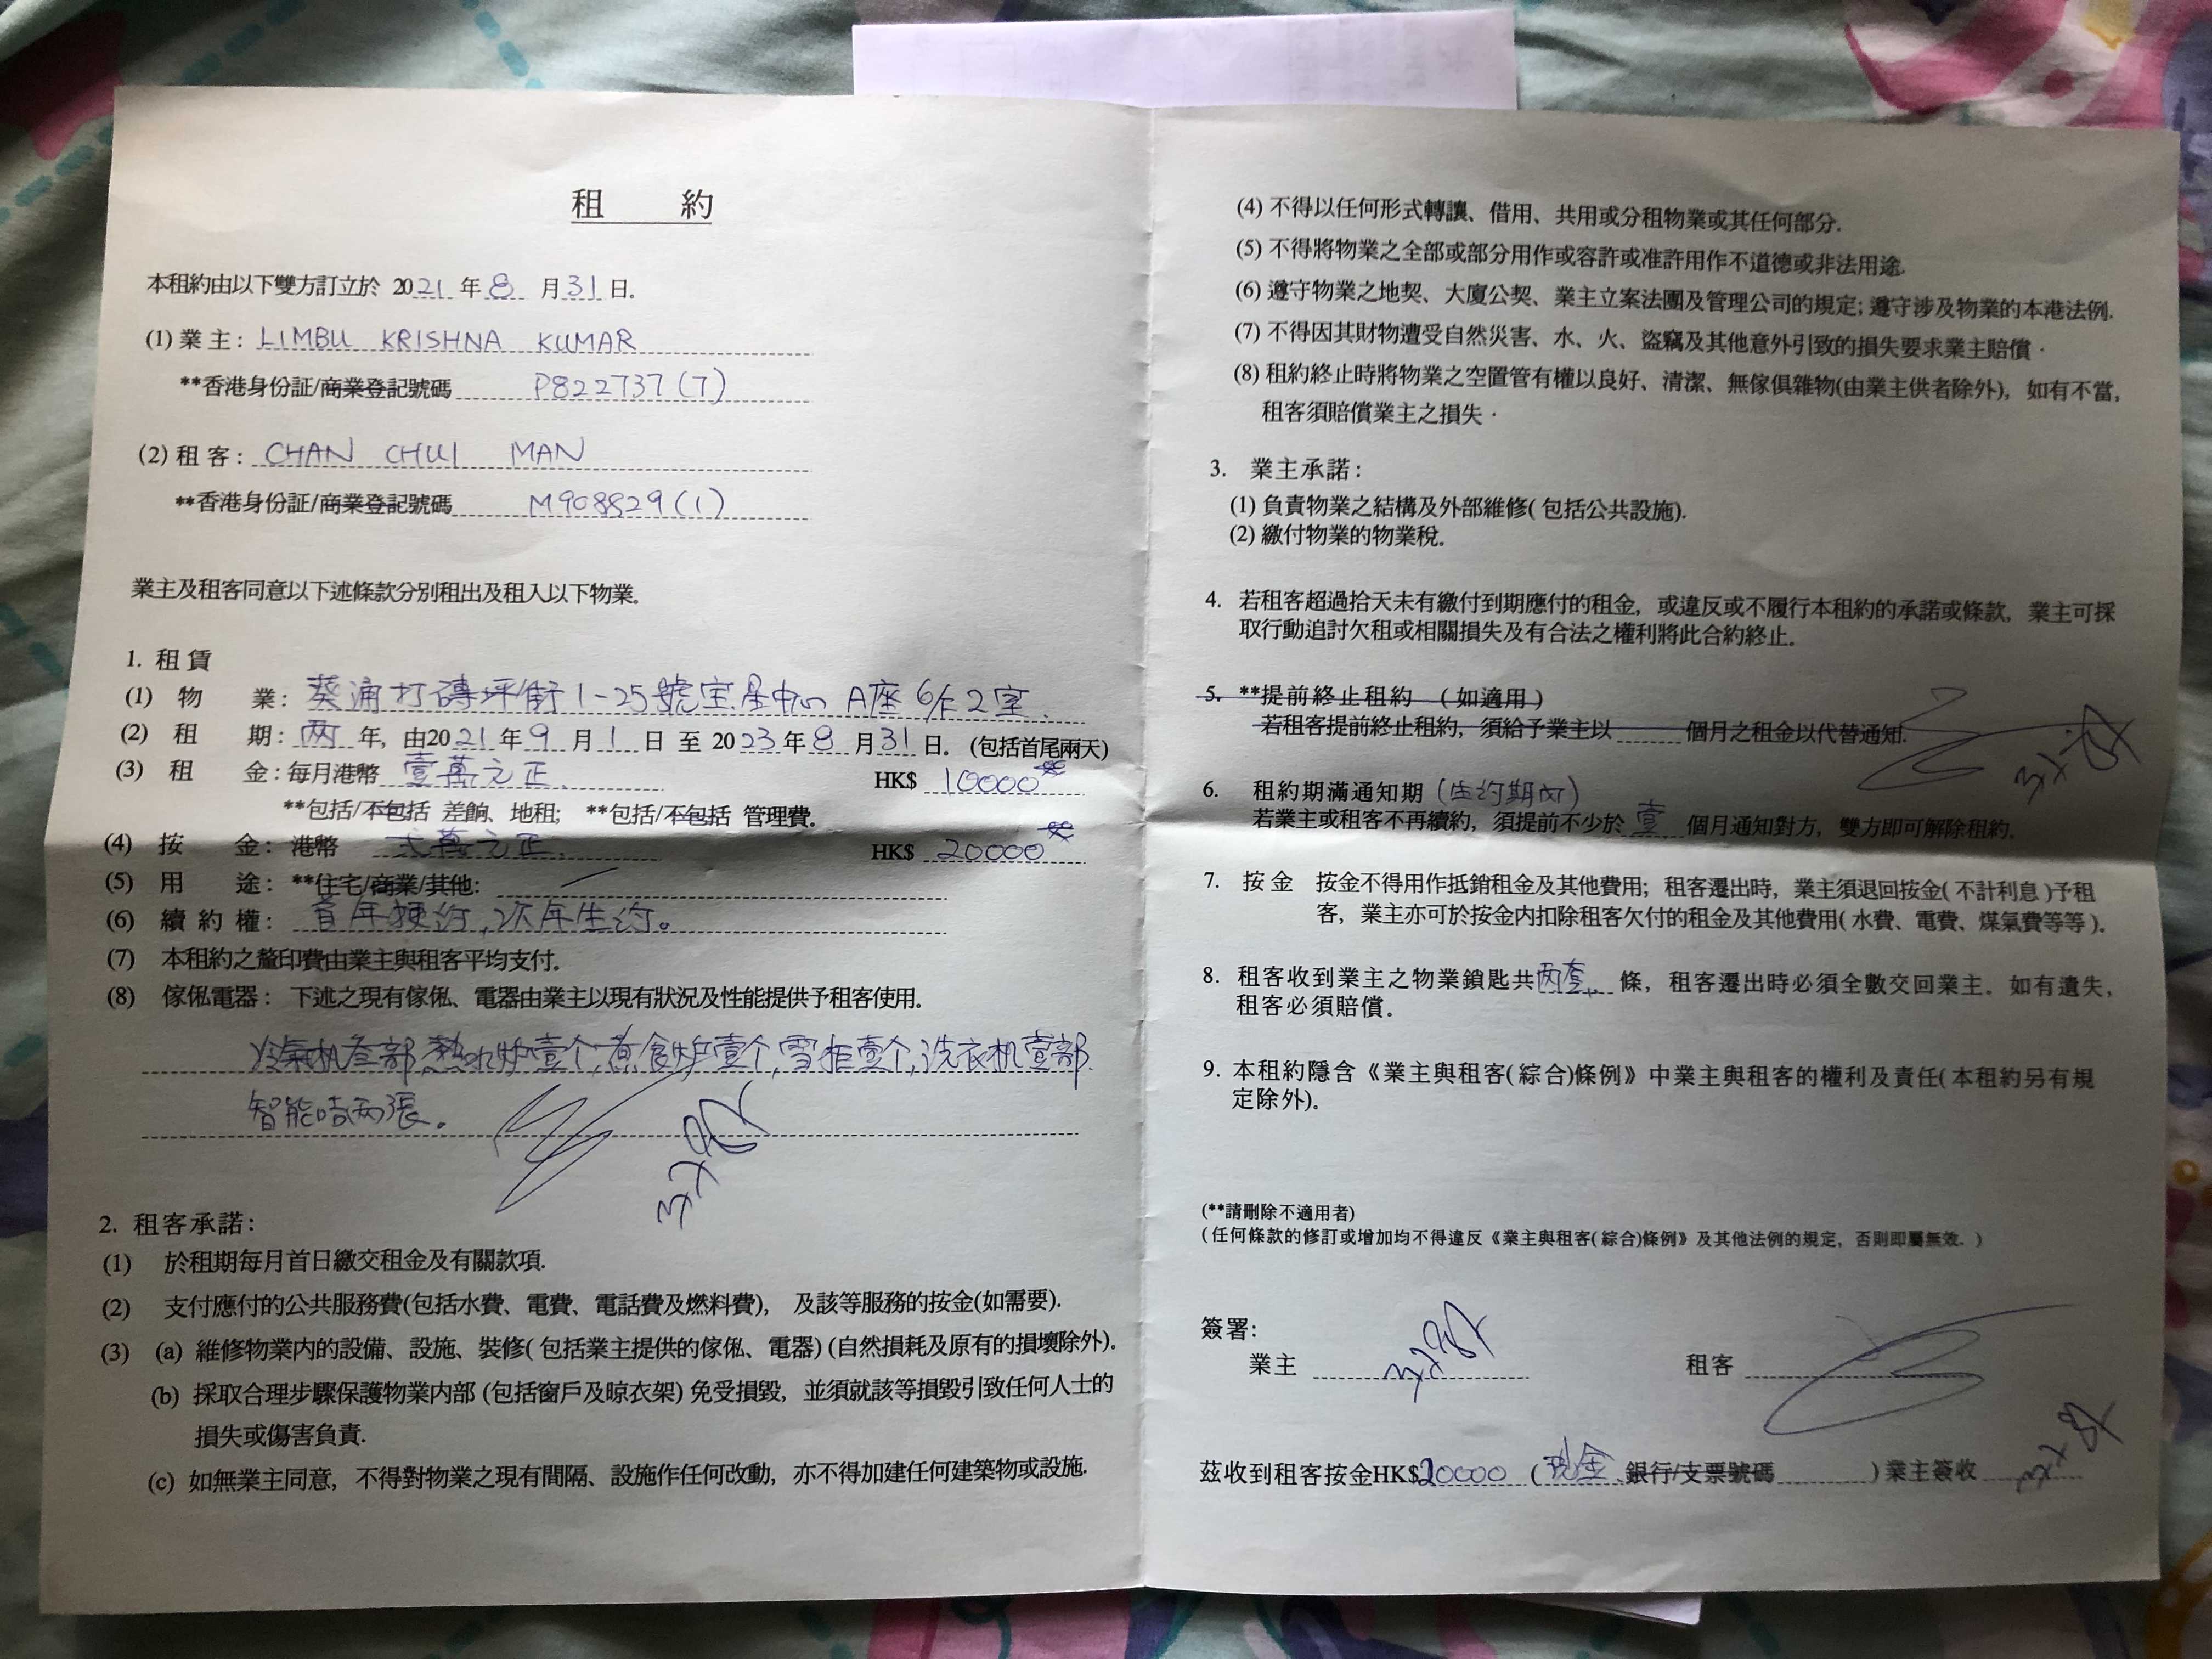 租 約
本租約由以下雙方訂立於 2021 年 8 月 31 日.
(1) 業 主: LIMBU KRISHNA KUMAR
**香港身份証/商業登記號碼 P822737(7)
(2) 租 客: CHAN CHUI MAN
**香港身份証/商業登記號碼 M908829(1)
業主及租客同意以下述條款分別租出及租入以下物業.
1. 租 賃
(1) 物 業: 葵涌打磚坪街1-25號宝星中心 A座 6/F 2室
(2) 租 期: 两 年, 由2021年9 月 1 日 至 2023年8 月31 日. (包括首尾兩天)
(3) 租 金: 每月港幣 壹萬元正 HK$ 10000
**包括/不包括 差餉、地租; **包括/不包括 管理費.
(4) 按 金: 港幣 弍萬元正 HK$ 20000
(5) 用 途: **住宅/商業/其他:
(6) 續 約 權: 首年梗约,次年生约。
(7) 本租約之釐印費由業主與租客平均支付.
(8) 傢俬電器: 下述之現有傢俬、電器由業主以現有狀況及性能提供予租客使用.
冷氣机叁部,熱水炉壹个,煮食炉壹个,雪柜壹个,洗衣机壹部
智能咭两張。
2. 租客承諾:
(1) 於租期每月首日繳交租金及有關款項.
(2) 支付應付的公共服務費(包括水費、電費、電話費及燃料費), 及該等服務的按金(如需要).
(3) (a) 維修物業內的設備、設施、裝修(包括業主提供的傢俬、電器) (自然損耗及原有的損壞除外).
(b) 採取合理步驟保護物業內部 (包括窗戶及晾衣架) 免受損毀, 並須就該等損毀引致任何人士的
損失或傷害負責.
(c) 如無業主同意, 不得對物業之現有間隔、設施作任何改動, 亦不得加建任何建築物或設施.
(4) 不得以任何形式轉讓、借用、共用或分租物業或其任何部分.
(5) 不得將物業之全部或部分用作或容許或准許用作不道德或非法用途.
(6) 遵守物業之地契、大廈公契、業主立案法團及管理公司的規定; 遵守涉及物業的本港法例.
(7) 不得因其財物遭受自然災害、水、火、盜竊及其他意外引致的損失要求業主賠償.
(8) 租約終止時將物業之空置管有權以良好、清潔、無傢俱雜物(由業主供者除外), 如有不當,
租客須賠償業主之損失.
3. 業主承諾:
(1) 負責物業之結構及外部維修(包括公共設施).
(2) 繳付物業的物業稅.
4. 若租客超過拾天未有繳付到期應付的租金, 或違反或不履行本租約的承諾或條款, 業主可採
取行動追討欠租或相關損失及有合法之權利將此合約終止.
5. **提前終止租約 (如適用)
若租客提前終止租約, 須給予業主以 個月之租金以代替通知.
6. 租約期滿通知期 (生约期內)
若業主或租客不再續約, 須提前不少於 壹 個月通知對方, 雙方即可解除租約.
7. 按金 按金不得用作抵銷租金及其他費用; 租客遷出時, 業主須退回按金(不計利息)予租
客, 業主亦可於按金內扣除租客欠付的租金及其他費用(水費、電費、煤氣費等等).
8. 租客收到業主之物業鎖匙共两套 條, 租客遷出時必須全數交回業主. 如有遺失,
租客必須賠償.
9. 本租約隱含《業主與租客(綜合)條例》中業主與租客的權利及責任(本租約另有規
定除外).
(**請刪除不適用者)
(任何條款的修訂或增加均不得違反《業主與租客(綜合)條例》及其他法例的規定, 否則即屬無效.)
簽署:
業主 租客
茲收到租客按金HK$20000 (現金 銀行/支票號碼 ) 業主簽收